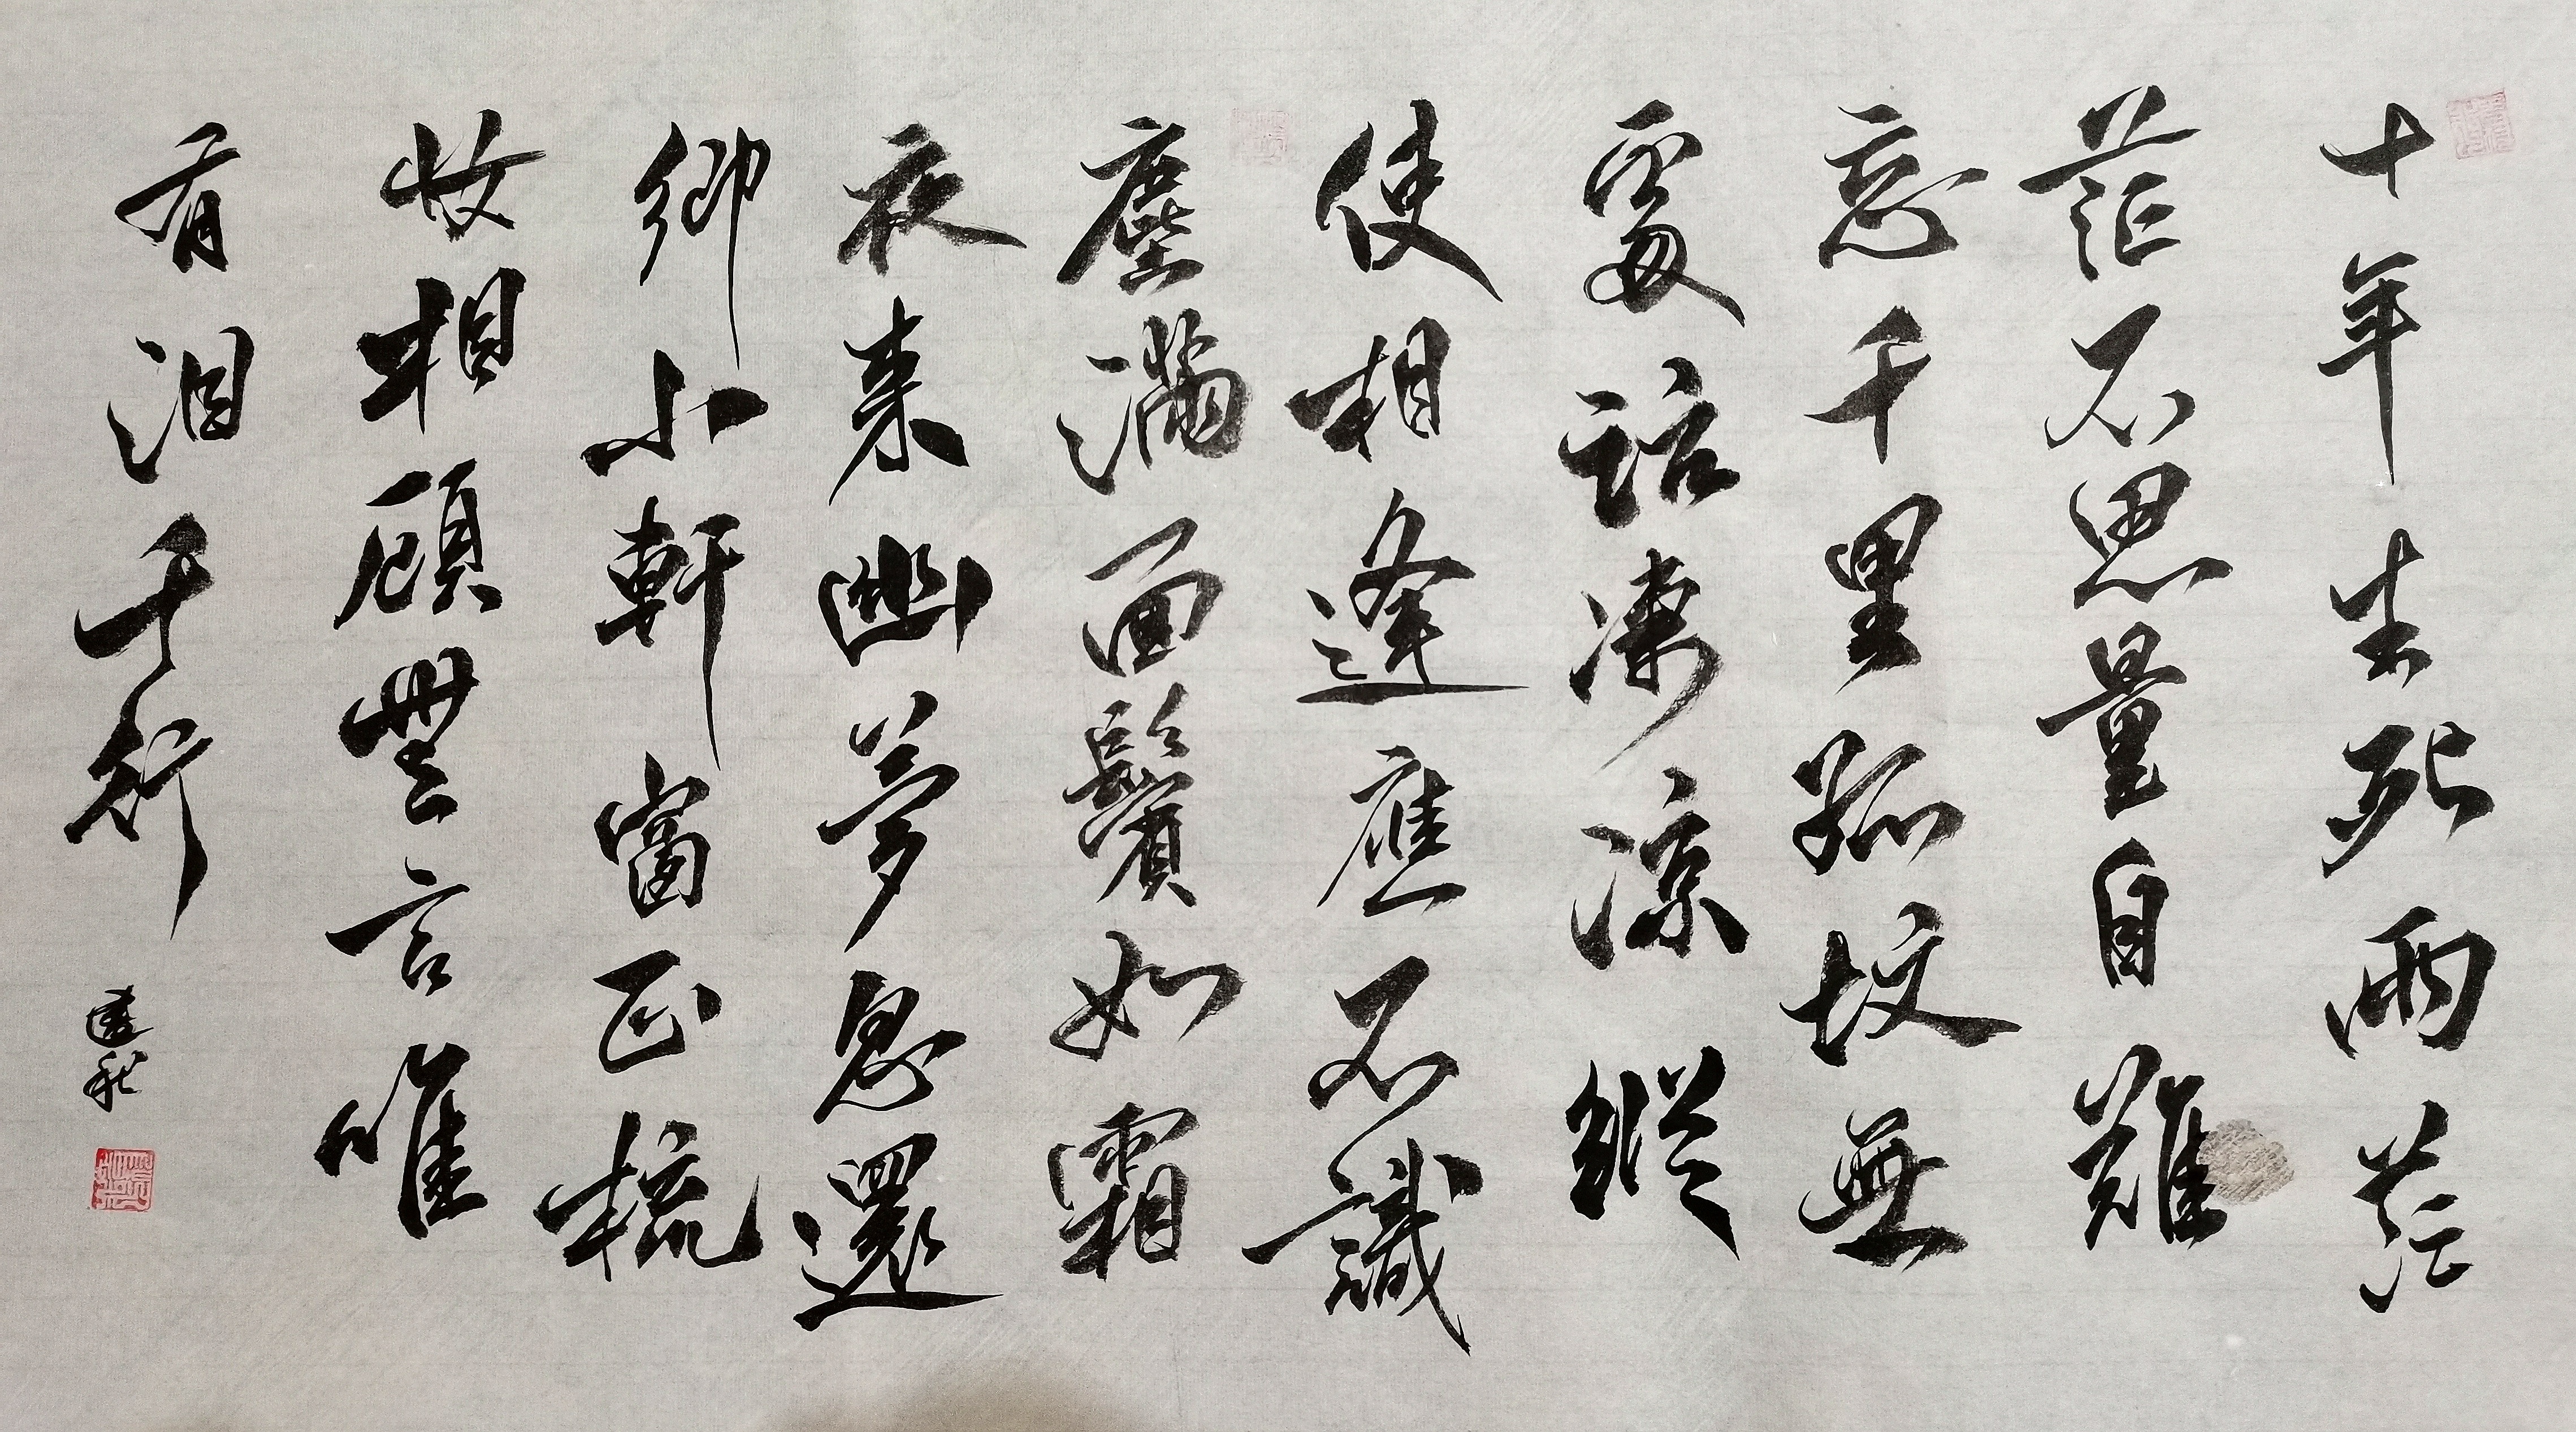 十年生死兩茫
茫不思量自難
忘千里孤墳無
處話凄涼縱
使相逢應不識
塵滿面鬢如霜
夜来幽夢忽還
鄉小軒窗正梳
妝相顧無言唯
有淚千行